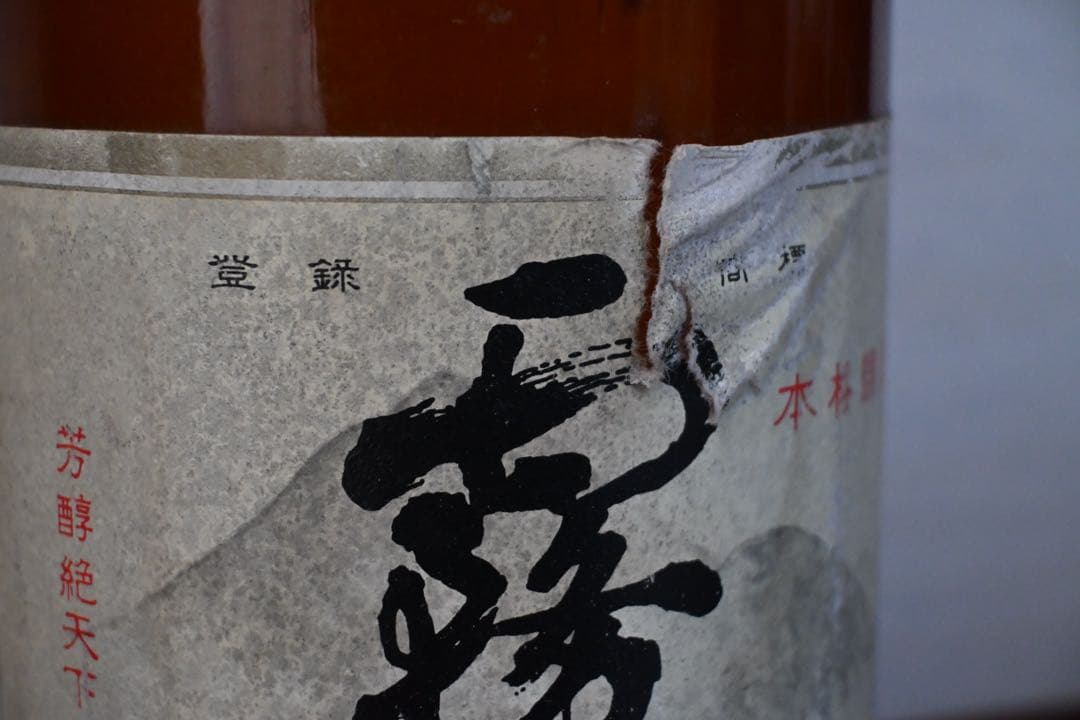 登録商標
霧
本格
芳醇絶天下